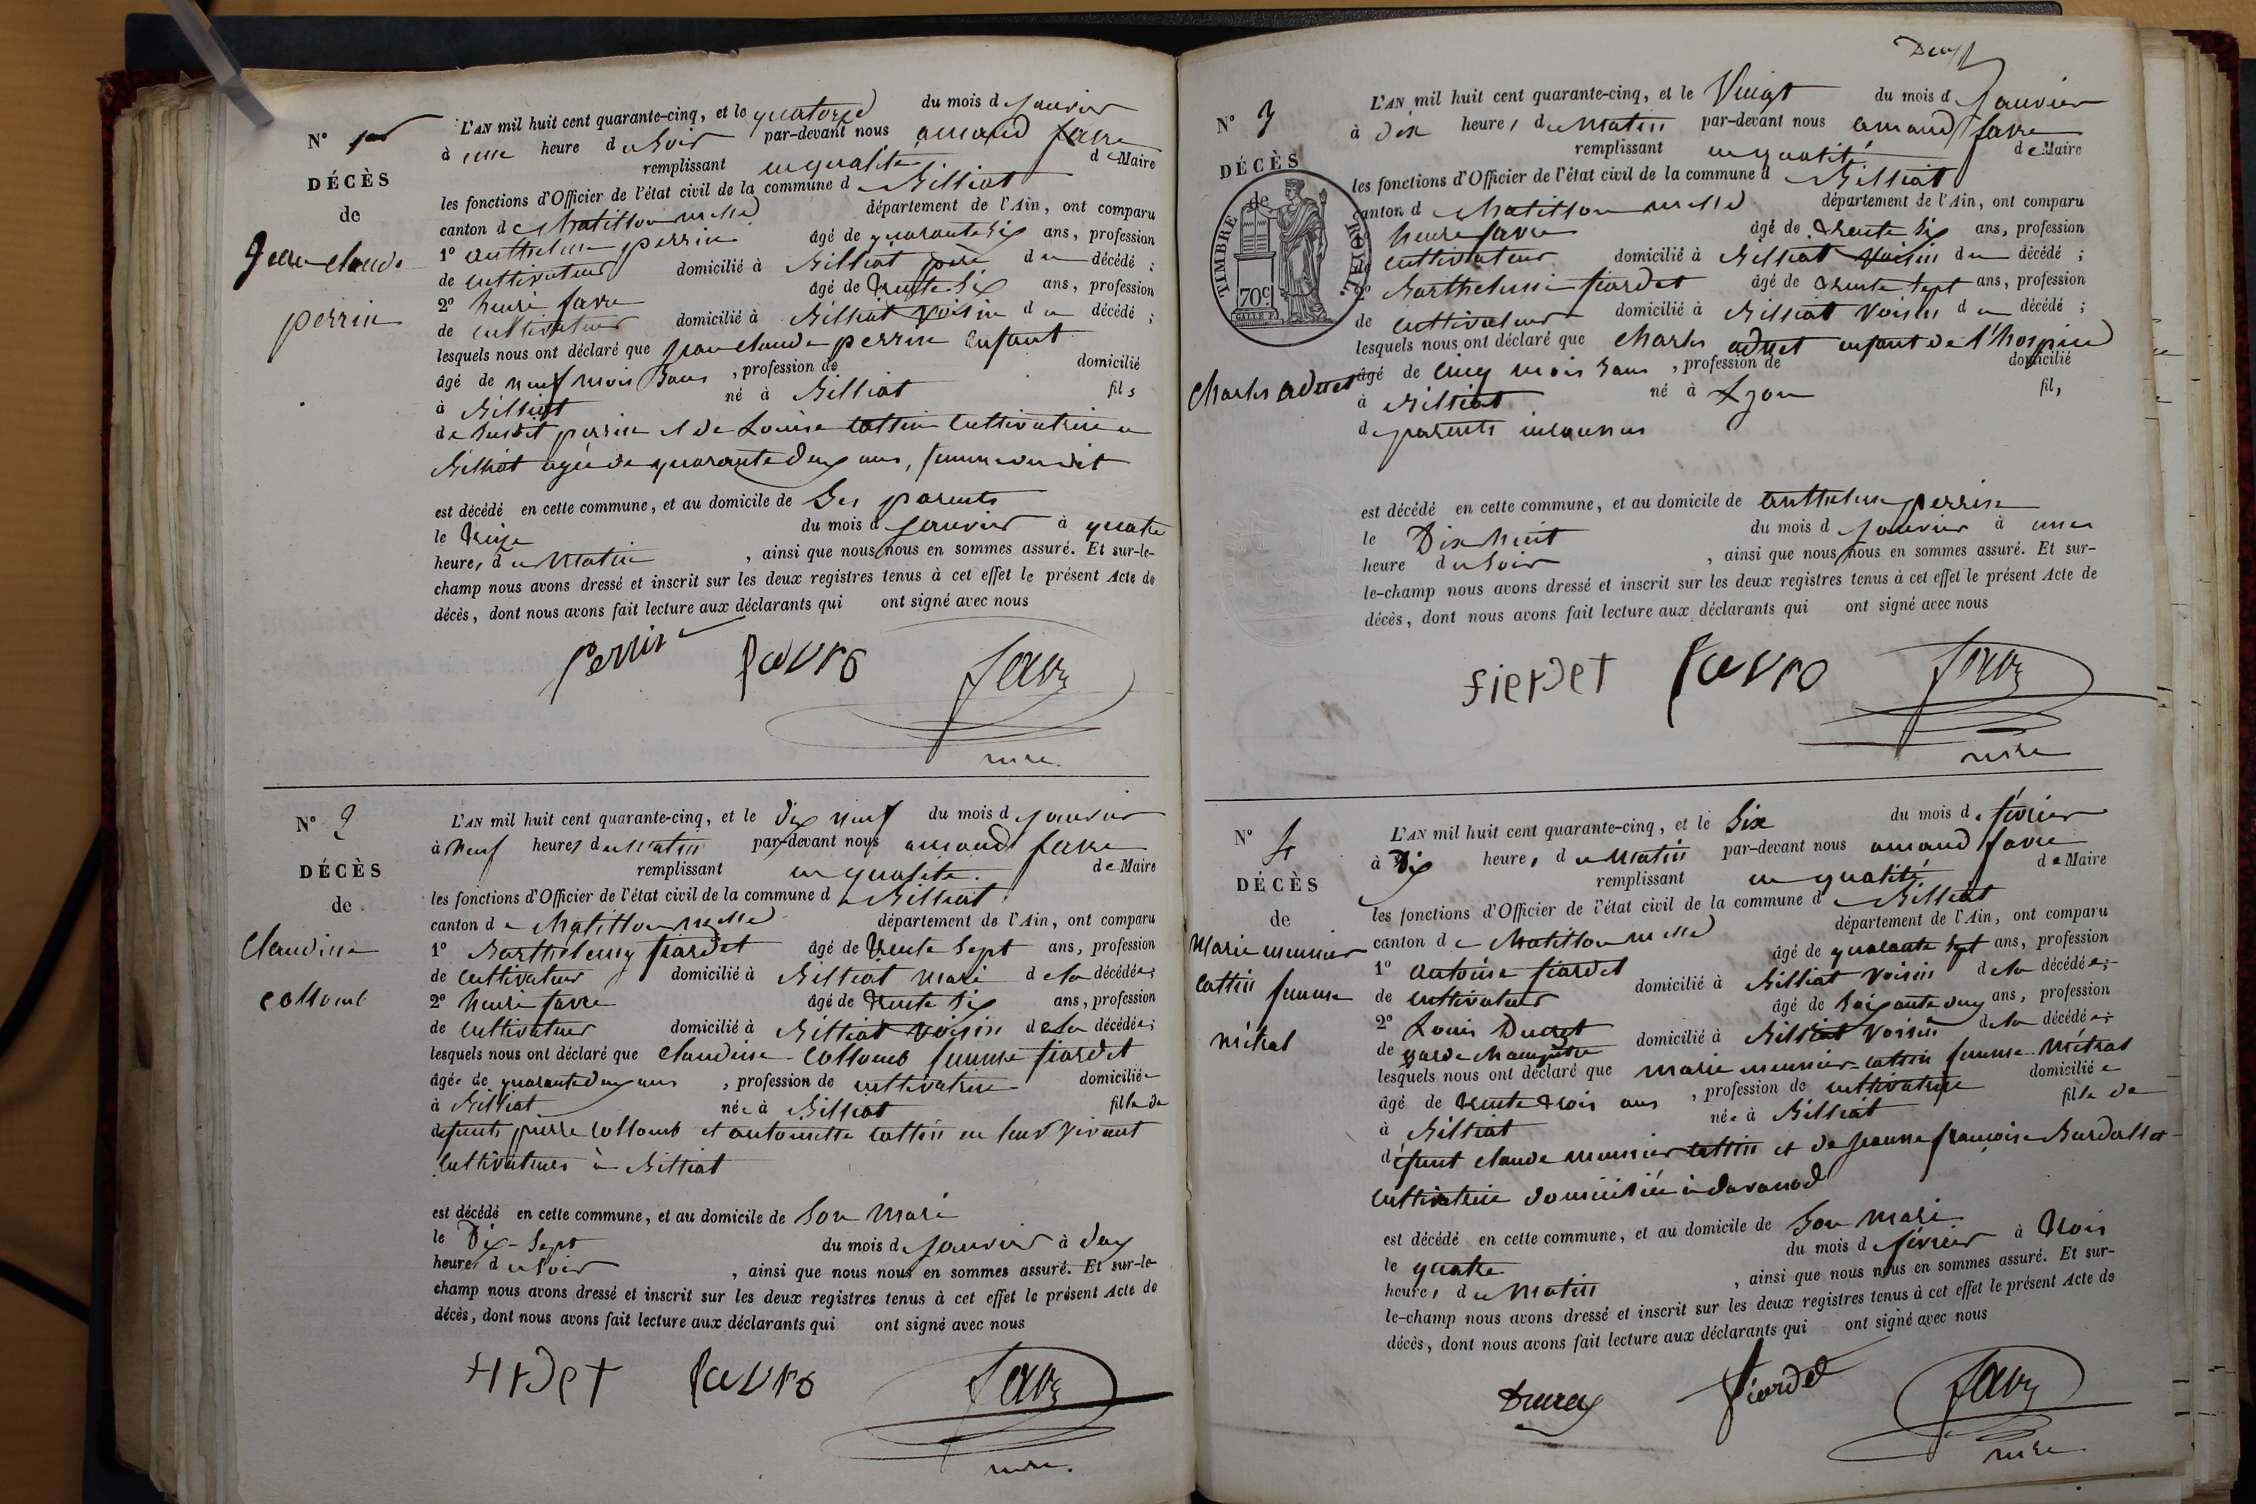 N° 1er
DÉCÈS
de
Jean claude
perrin
L'AN mil huit cent quarante-cinq, et le quatorze du mois de janvier
à une heure du Soir par-devant nous amand favre
remplissant en qualité de Maire
les fonctions d'Officier de l'état civil de la commune de Billiat
canton de Chatillon département de l'Ain, ont comparu
1° anthelme perrin âgé de quarante Six ans, profession
de cultivateur domicilié à Billiat père du décédé ;
2° henri favre âgé de trente Six ans, profession
de cultivateur domicilié à Billiat voisin du décédé ;
lesquels nous ont déclaré que jean claude perrin enfant
âgé de neuf mois , profession de domicilié
à Billiat né à Billiat fils
de Susdit perrin et de Louise cottin cultivatrice a
Billiat agée de quarante deux ans, femme dudit
est décédé en cette commune, et au domicile de Ses parents
le treize du mois de janvier à quatre
heures du Matin , ainsi que nous nous en sommes assuré. Et sur-le-
champ nous avons dressé et inscrit sur les deux registres tenus à cet effet le présent Acte de
décès, dont nous avons fait lecture aux déclarants qui ont signé avec nous
Perrin favre favre
mre
N° 2
DÉCÈS
de
Claudine
collomb
L'AN mil huit cent quarante-cinq, et le dix neuf du mois de janvier
à neuf heures du Matin par-devant nous amand favre
remplissant en qualité de Maire
les fonctions d'Officier de l'état civil de la commune de Billiat
canton de Chatillon département de l'Ain, ont comparu
1° Barthélemy fiardet âgé de trente Sept ans, profession
de cultivateur domicilié à Billiat mari de la décédée ;
2° henri favre âgé de trente Six ans, profession
de cultivateur domicilié à Billiat voisin de la décédée ;
lesquels nous ont déclaré que claudine collomb femme fiardet
âgée de quarante deux ans , profession de cultivatrice domiciliée
à Billiat née à Billiat fille de
defunts pierre collomb et antoinette cottin en leur vivant
cultivateurs à Billiat
est décédé en cette commune, et au domicile de Son Mari
le Dix-Sept du mois de janvier à deux
heures du Soir , ainsi que nous nous en sommes assuré. Et sur-le-
champ nous avons dressé et inscrit sur les deux registres tenus à cet effet le présent Acte de
décès, dont nous avons fait lecture aux déclarants qui ont signé avec nous
favre favre
mre.
Deux
N° 3
DÉCÈS
de
TIMBRE ROYAL
70c
Charles aduet
L'AN mil huit cent quarante-cinq, et le Vingt du mois de Janvier
à dix heures du Matin par-devant nous amand favre
remplissant en qualité de Maire
les fonctions d'Officier de l'état civil de la commune d Billiat
canton de Chatillon département de l'Ain, ont comparu
henri favre âgé de trente Six ans, profession
de cultivateur domicilié à Billiat voisin du décédé ;
2° Barthelemi fiardet âgé de trente Sept ans, profession
de cultivateur domicilié à Billiat voisin du décédé ;
lesquels nous ont déclaré que charles aduet enfant de l'hospice
âgé de cinq mois , profession de domicilié
à Billiat né à Lyon fils
de parents inconnus
est décédé en cette commune, et au domicile de anthelme perrin
le Dix huit du mois de janvier à une
heure du Soir , ainsi que nous nous en sommes assuré. Et sur-
le-champ nous avons dressé et inscrit sur les deux registres tenus à cet effet le présent Acte de
décès, dont nous avons fait lecture aux déclarants qui ont signé avec nous
fierdet favro favre
mre
N° 4
DÉCÈS
de
Marie meunier
cottin femme
métral
L'AN mil huit cent quarante-cinq, et le Six du mois de février
à Dix heures du Matin par-devant nous amand favre
remplissant en qualité de Maire
les fonctions d'Officier de l'état civil de la commune de Billiat
canton de Chatillon département de l'Ain, ont comparu
1° antoine fiardet âgé de quarante Sept ans, profession
de cultivateur domicilié à Billiat voisin de la décédée ;
2° Louis Ducret âgé de Soixante deux ans, profession
de garde champêtre domicilié à Billiat voisin de la décédée ;
lesquels nous ont déclaré que marie meunier cottin femme métral
âgé de trente trois ans , profession de cultivatrice domiciliée
à Billiat née à Billiat fille de
défunt claude meunier cottin et de jeanne françoise Burdallet
cultivatrice domiciliée
est décédé en cette commune, et au domicile de Son mari
le quatre du mois de février à trois
heures du Matin , ainsi que nous nous en sommes assuré. Et sur-
le-champ nous avons dressé et inscrit sur les deux registres tenus à cet effet le présent Acte de
décès, dont nous avons fait lecture aux déclarants qui ont signé avec nous
fiardet favre
mre